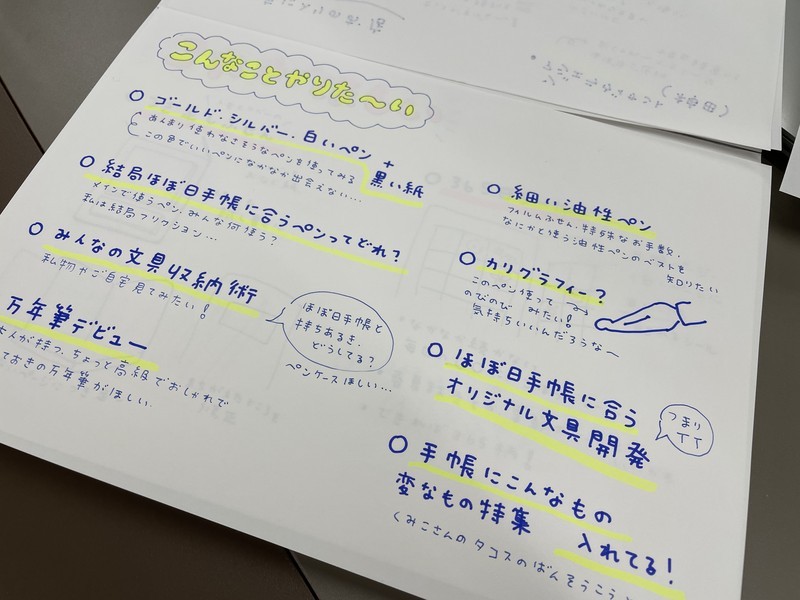 こんなことやりた〜い
○ ゴールド・シルバー・白いペン +
黒い紙
あんまり使わなさそうなペンを使ってみる
この色でいいペンになかなか出会えない…
○ 結局ほぼ日手帳に合うペンってどれ?
メインで使うペン、みんな何使う?
私は結局フリクション…
○ みんなの文具収納術
私物やご自宅見てみたい!
ほぼ日手帳と
持ちあるき、
どうしてる?
ペンケースほしい…
万年筆デビュー
大人が持つ、ちょっと高級でおしゃれで
ておきの万年筆がほしい
○ 細い油性ペン
フィルムふせん、特殊なお手数、
なにかと使う油性ペンのベストを
知りたい
○ カリグラフィー?
このペン使って
のびのび みたい!
気持ちいいんだろうな〜
○ ほぼ日手帳に合う
オリジナル文具開発
つまり
TT
○ 手帳にこんなもの
入れてる!
変なもの特集
くみこさんのタコスのばんそうこう